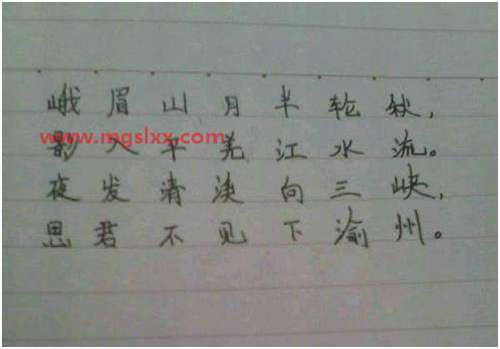 峨眉山月半轮秋,
www.mgslxx.com
影入平羌江水流。
夜发清溪向三峡,
思君不见下渝州。